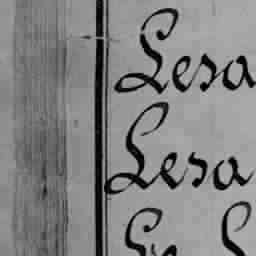 Lesa
Lesa